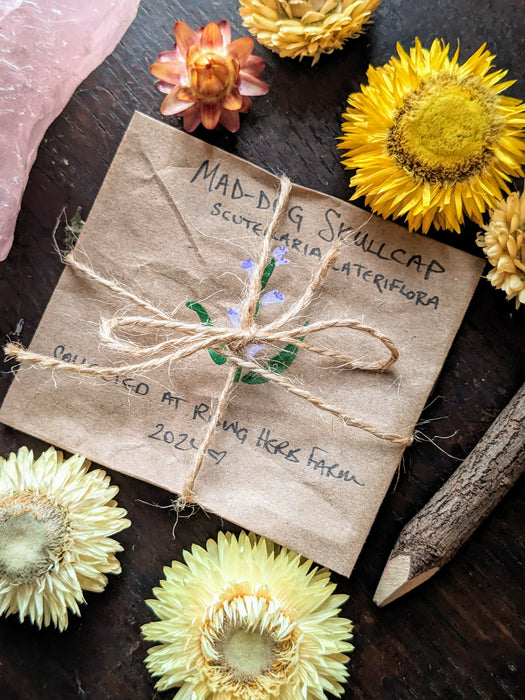 MAD-DOG SKULLCAP
SCUTELLARIA LATERIFLORA
COLLECTED AT RISING HERB FARM
2024